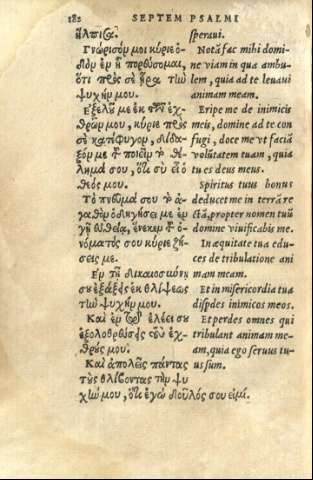 182 SEPTEM PSALMI
ἤλπισα.
Γνώρισόν μοι κύριε ὁ-
δὸν ἐν ᾗ πορεύσομαι,
ὅτι πρὸς σὲ ἦρα τὴν
ψυχήν μου.
Ἐξελοῦ με ἐκ τῶν ἐχ-
θρῶν μου, κύριε πρὸς
σὲ κατέφυγον, δίδα-
ξόν με τοῦ ποιεῖν τὸ θέ-
λημά σου, ὅτι σὺ εἶ ὁ
θεός μου.
Τὸ πνεῦμά σου τὸ ἀ-
γαθὸν ὁδηγήσει με ἐν
γῇ εὐθείᾳ, ἕνεκεν τοῦ ὀ-
νόματός σου κύριε ζή-
σεις με.
Ἐν τῇ δικαιοσύνῃ
σου ἐξάξεις ἐκ θλίψεως
τὴν ψυχήν μου.
Καὶ ἐν τῷ ἐλέει σου
ἐξολοθρεύσεις τοὺς ἐχ-
θρούς μου.
Καὶ ἀπολεῖς πάντας
τοὺς θλίβοντας τὴν ψυ-
χήν μου, ὅτι ἐγὼ δοῦλός σου εἰμί.
speraui.
Notā fac mihi domi-
ne viam in qua ambu-
lem, quia ad te leuaui
animam meam.
Eripe me de inimicis
meis, domine ad te con
fugi, doce me vt faciā
volūtatem tuam, quia
tu es deus meus.
Spiritus tuus bonus
deducet me in terrā re
ctā, propter nomen tuū
domine viuificabis me.
In aequitate tua edu-
ces de tribulatione ani
mam meam.
Et in misericordia tua
dispdes inimicos meos.
Et perdes omnes qui
tribulant animam me-
am, quia ego seruus tu-
us sum.